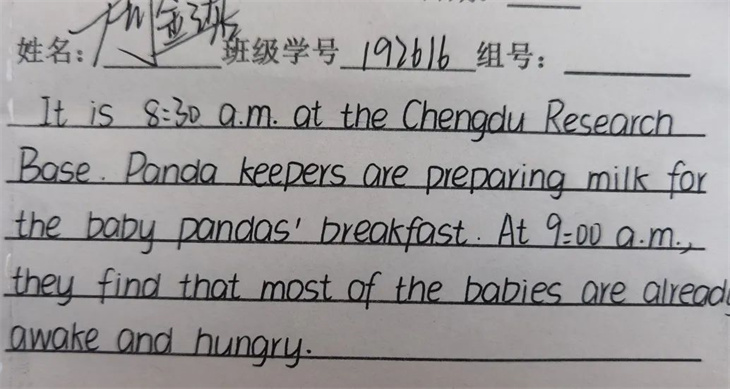 姓名: 班级学号 192616 组号:
It is 8:30 a.m. at the Chengdu Research
Base. Panda keepers are preparing milk for
the baby pandas' breakfast. At 9:00 a.m.,
they find that most of the babies are already
awake and hungry.